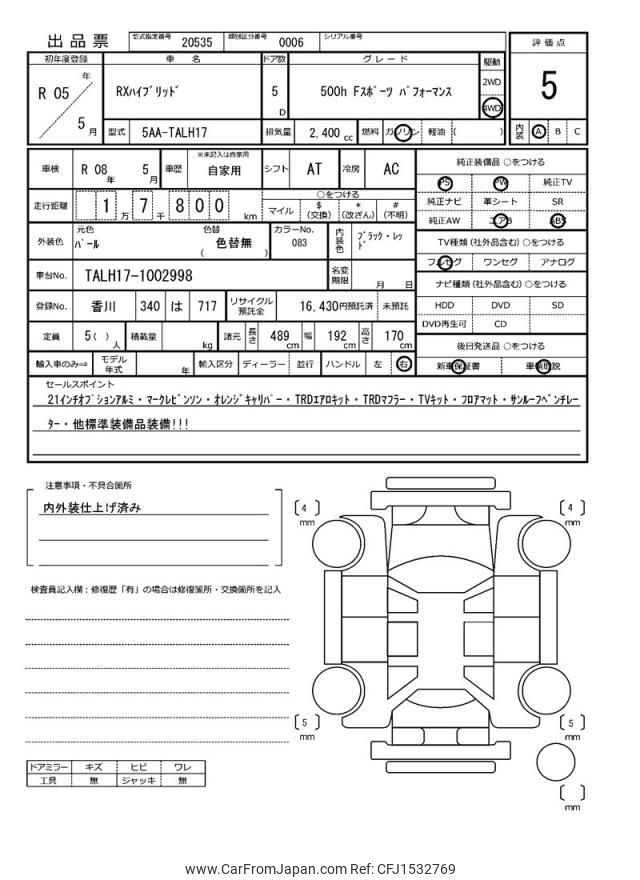 出品票 型式指定番号 20535 類別区分番号 0006 シリアル番号
評価点
5
内装 A B C
初年度登録 車名 ドア数 グレード 駆動
R 05年 5月 RXハイブリッド 5D 500h Fスポーツ パフォーマンス 2WD 4WD
型式 5AA-TALH17 排気量 2,400 cc 燃料 ガソリン 軽油 ( )
車検 R 08年 5月 車歴 ※未記入は自家用 自家用 シフト AT 冷房 AC
走行距離 1万7千800km ○をつける
マイル $(交換) *(改ざん) #(不明)
外装色 元色 パール 色替 ( 色替無 ) カラーNo. 083 内装色 ブラック・レッド
車台No. TALH17-1002998 名変期限 月 日
登録No. 香川 340 は 717 リサイクル預託金 16,430円預託済 未預託
定員 5( )人 積載量 kg 諸元 長さ 489cm 幅 192cm 高さ 170cm
輸入車のみ⇒ モデル年式 年 輸入区分 ディーラー 並行 ハンドル 左 右
純正装備品 ○をつける
PS PW 純正TV
純正ナビ 革シート SR
純正AW エアB ABS
TV種類(社外品含む)○をつける
フルセグ ワンセグ アナログ
ナビ種類(社外品含む)○をつける
HDD DVD SD
DVD再生可 CD
後日発送品 ○をつける
新車保証書 車輌取説
セールスポイント
21インチオプションアルミ・マークレビンソン・オレンジキャリパー・TRDエアロキット・TRDマフラー・TVキット・フロアマット・サンルーフベンチレー
ター・他標準装備品装備!!!
注意事項・不具合箇所
内外装仕上げ済み
検査員記入欄：修復歴「有」の場合は修復箇所・交換箇所を記入
[4] mm
[4] mm
[5] mm
[5] mm
[ ] mm
ドアミラー キズ ヒビ ワレ
工具 無 ジャッキ 無
www.CarFromJapan.com Ref: CFJ1532769